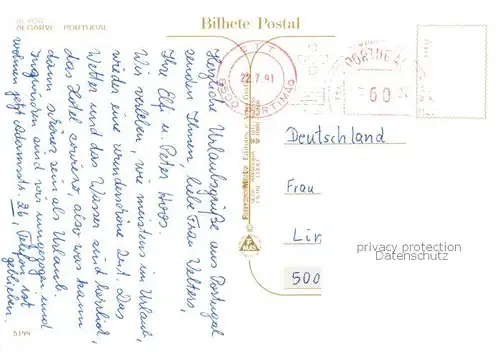 ALVOR
ALGARVE PORTUGAL
Bilhete Postal
Herzliche Urlaubsgrüße aus Portugal
senden Ihnen, liebe Frau Welters,
Ihre Elfi u. Peter Hoos.
Wir erleben, wie meistens im Urlaub,
wieder eine wunderschöne Zeit. Das
Wetter und das Wasser sind herrlich,
das Hotel sowieso, also was kann
dann schöner sein als Urlaub.
Inzwischen sind wir umgezogen und
wohnen jetzt Adamsstr. 26, Telefon ist
geblieben.
5144
CTT
22.7.91
8500 PORTIMÃO
PORTUGAL
60
Deutschland
Frau
Lin
500
privacy protection
Datenschutz